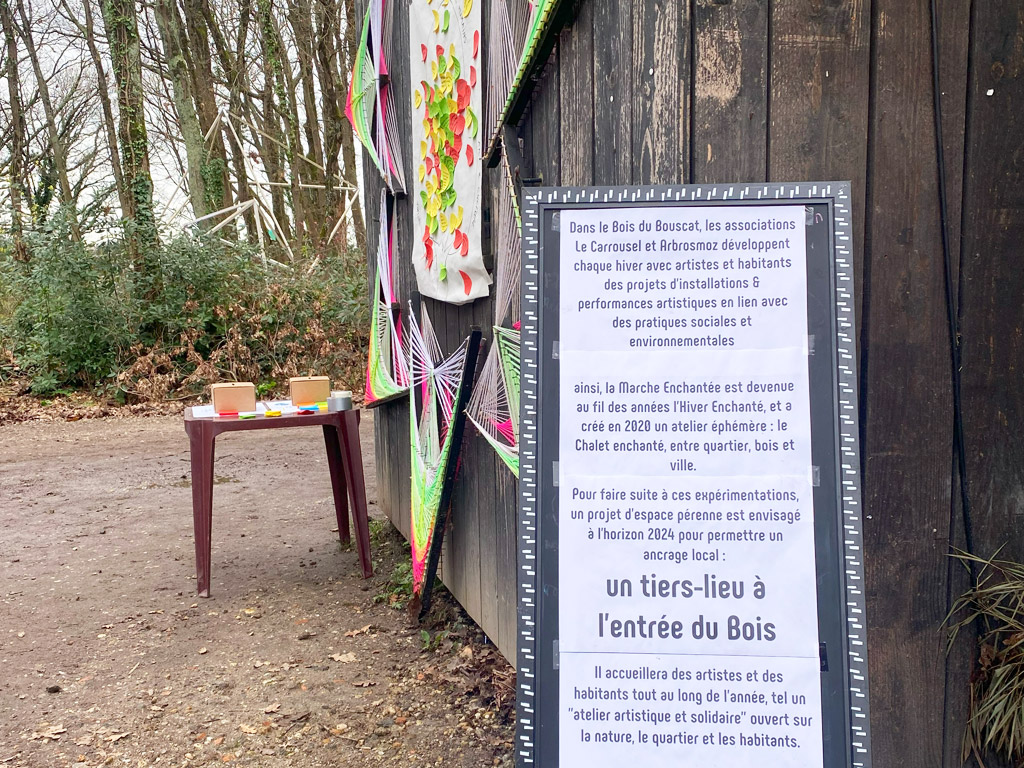 Dans le Bois du Bouscat, les associations
Le Carrousel et Arbrosmoz développent
chaque hiver avec artistes et habitants
des projets d'installations &
performances artistiques en lien avec
des pratiques sociales et
environnementales
ainsi, la Marche Enchantée est devenue
au fil des années l'Hiver Enchanté, et a
créé en 2020 un atelier éphémère : le
Chalet enchanté, entre quartier, bois et
ville.
Pour faire suite à ces expérimentations,
un projet d'espace pérenne est envisagé
à l'horizon 2024 pour permettre un
ancrage local :
un tiers-lieu à
l'entrée du Bois
Il accueillera des artistes et des
habitants tout au long de l'année, tel un
"atelier artistique et solidaire" ouvert sur
la nature, le quartier et les habitants.